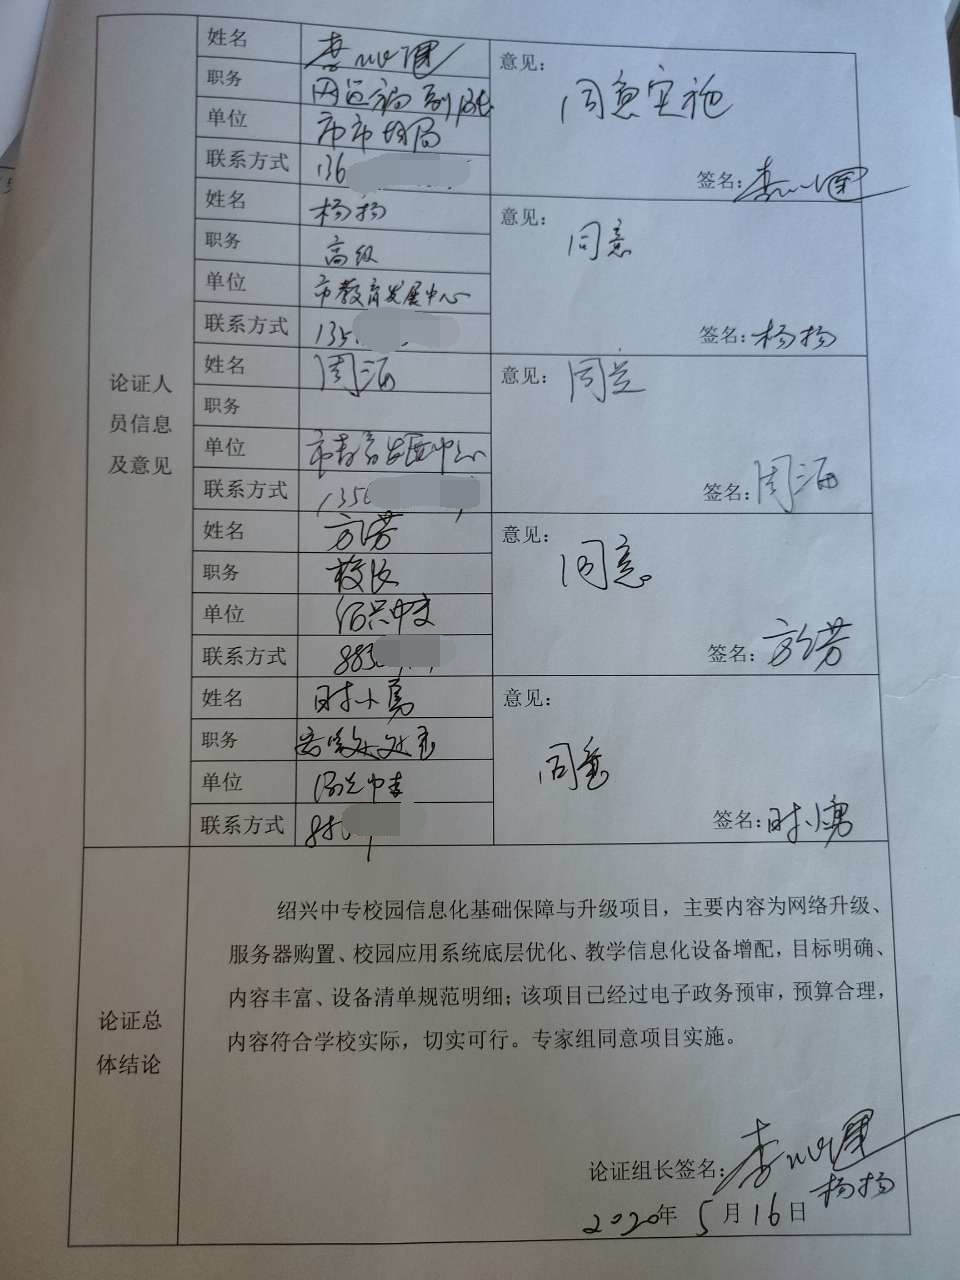 姓名
职务
单位 市市场局
联系方式 136
意见：
同意实施
签名：
姓名 杨扬
职务 高级
单位 市教育发展中心
联系方式 135
意见：
同意
签名：杨扬
姓名 周海
职务
单位 市教育发展中心
联系方式 1350
意见：
同意
签名：周海
论证人
员信息
及意见
姓名 方芳
职务 校长
单位 绍兴中专
联系方式 883
意见：
同意
签名：方芳
姓名 时小勇
职务
单位 绍兴中专
联系方式 88
意见：
同意
签名：时小勇
论证总
体结论
绍兴中专校园信息化基础保障与升级项目，主要内容为网络升级、
服务器购置、校园应用系统底层优化、教学信息化设备增配，目标明确、
内容丰富、设备清单规范明细；该项目已经过电子政务预审，预算合理，
内容符合学校实际，切实可行。专家组同意项目实施。
论证组长签名：
杨扬
2020年 5 月 16 日